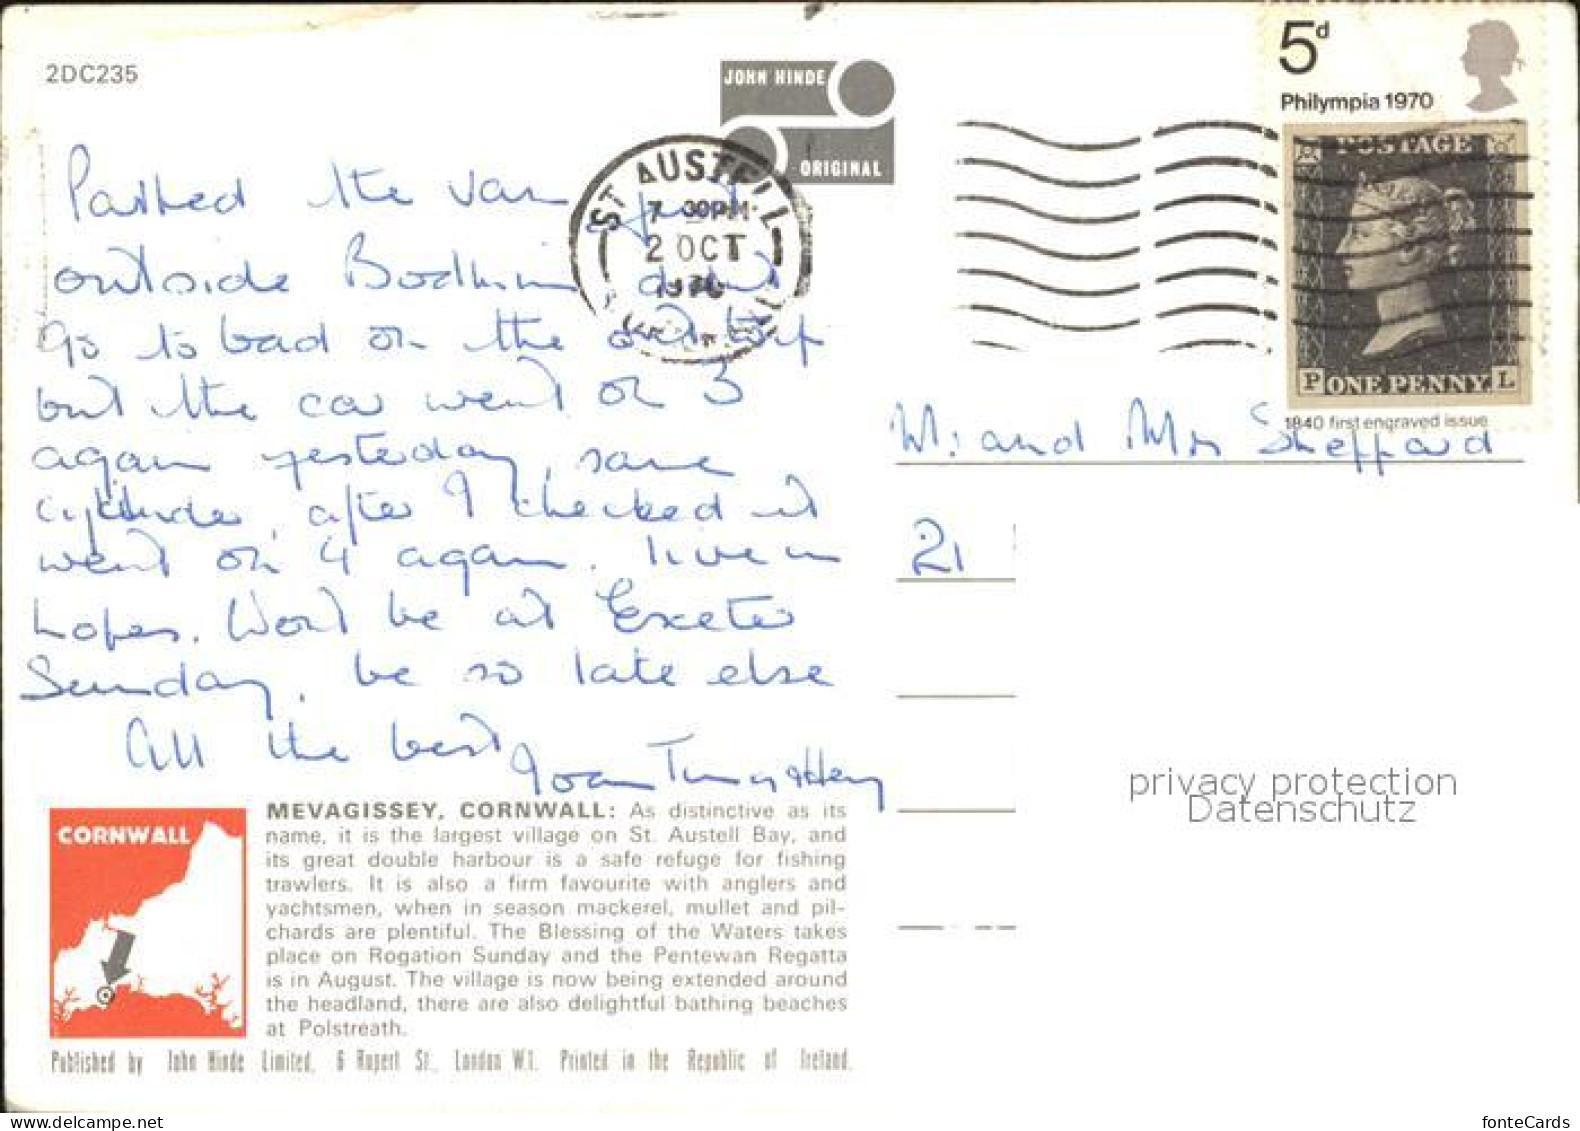 2DC235
JOHN HINDE
ORIGINAL
5d
Philympia 1970
POSTAGE
P ONE PENNY L
1840 first engraved issue
ST AUSTELL
7 30PM
2 OCT
1970
CORNWALL
Parked the van just
outside Bodmin, didnt
go to bad on the old trip
but the car went on 3
again yesterday, same
cylinder, after I checked it
went on 4 again. live in
hopes. Wont be at Exeter
Sunday, be so late else
All the best
Joan Tim & Hen
Mr and Mrs Sheppard
21
CORNWALL
MEVAGISSEY, CORNWALL: As distinctive as its
name, it is the largest village on St. Austell Bay, and
its great double harbour is a safe refuge for fishing
trawlers. It is also a firm favourite with anglers and
yachtsmen, when in season mackerel, mullet and pil-
chards are plentiful. The Blessing of the Waters takes
place on Rogation Sunday and the Pentewan Regatta
is in August. The village is now being extended around
the headland, there are also delightful bathing beaches
at Polstreath.
Published by John Hinde Limited, 6 Rupert St., London W.1. Printed in the Republic of Ireland.
privacy protection
Datenschutz
fonteCards